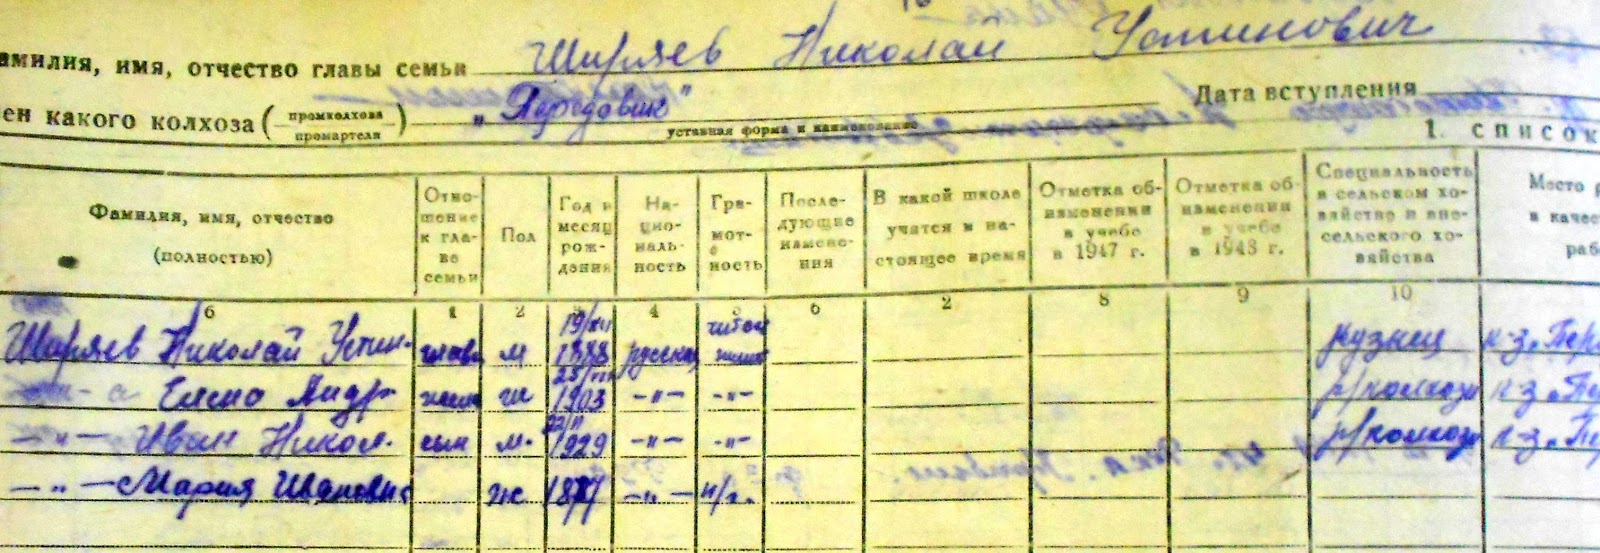 амилия, имя, отчество главы семьи Ширяев Николай Устинович
ен какого колхоза (промколхоза промартели) „Передовик" Дата вступления
уставная форма и наименование
1. СПИСОК
Фамилия, имя, отчество (полностью) Отно-шение к гла-ве семьи Пол Год и месяц рож-дения На-цио-наль-ность Гра-мот-ность После-дующие измене-ния В какой школе учатся в на-стоящее время Отметка об-изменении в учебе в 1947 г. Отметка об-изменении в учебе в 1948 г. Специальность в сельском хо-зяйстве и вне-сельского хо-зяйства Место р в качест рабо
6 1 2 3 4 5 6 2 8 9 10
Ширяев Николай Устин. глава м 19/XII 1888 русский кузнец к-з „Пер
а Елена Андр жена ж 1903 -"- -"- р/колхоза к-з „Пе
-"- Иван Никол. сын м. 1929 -"- -"- р/колхоза к-з „Пе
-"- Мария Ивановн ж 1877 -"- н/г.